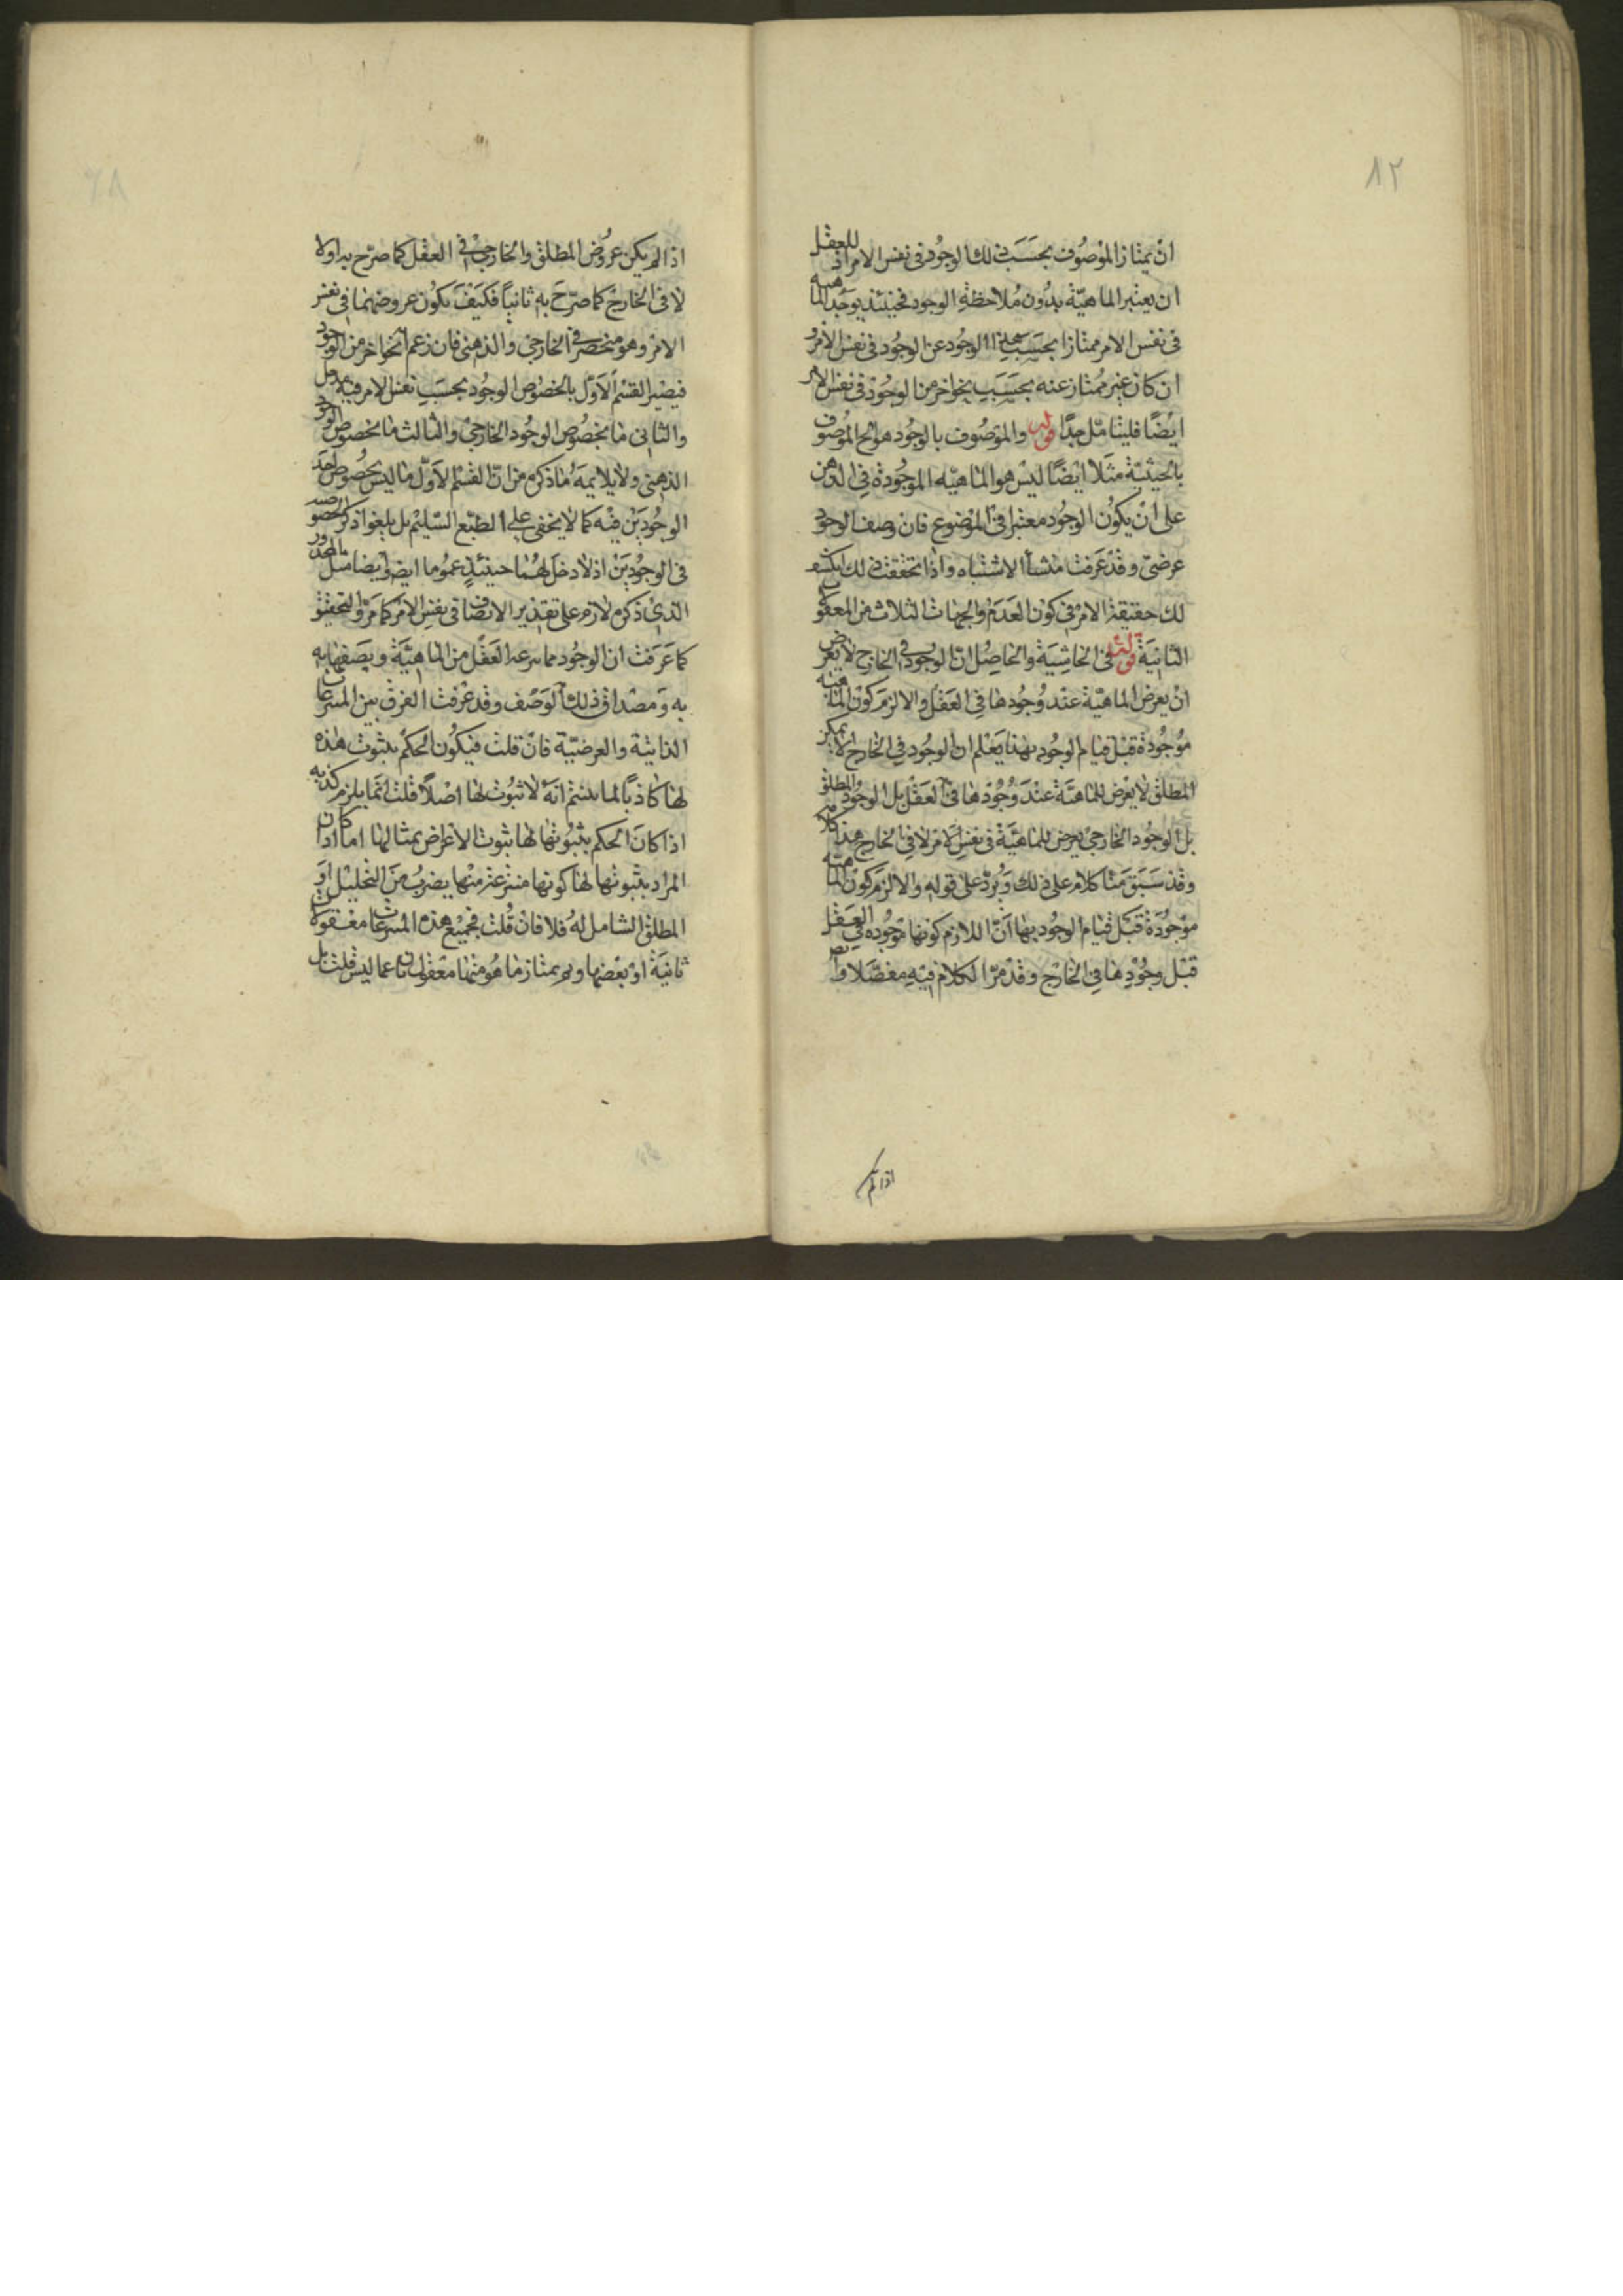 ٨٢
ان يمتاز الموصوف بحسب ذلك الوجود في نفس الامر اذ للعقل
ان يعتبر الماهية بدون ملاحظة الوجود فحينئذ يوجد الماهية
في نفس الامر ممتازا بحسب هذا الوجود عن الوجود في نفس الامر و
ان كان غير ممتاز عنه بحسب نحو اخر من الوجود في نفس الامر
ايضا فليتامل جدا قوله والموصوف بالوجود هو الموصوف
بالحيثية مثلا ايضا ليس هو الماهية الموجودة في الذهن
على ان يكون الوجود معتبرا في الموضوع فان وصف الوجود
عرضي وقد عرفت منشأ الاشتباه واذا تحققت ذلك انكشف
لك حقيقة الامر في كون العدم والجهات الثلاث من المعقولات
الثانية قوله في الحاشية والحاصل ان الوجود في الخارج لا يعرض
ان يعرض الماهية عند وجودها في العقل والا لزم كون الماهية
موجودة قبل قيام الوجود بها هذا يعلم ان الوجود في الخارج لا يمكن
المطلق لا يعرض للماهية عند وجودها في العقل بل الوجود المطلق
بل الوجود الخارجي يعرض للماهية في نفس الامر لا في الخارج هذا كلامه
وقد سبق منا كلام على ذلك ويرد على قوله والا لزم كون الماهية
موجودة قبل قيام الوجود بها ان اللازم كونها موجودة في العقل
قبل وجودها في الخارج وقد مر الكلام فيه مفصلا وايضا
اذا لم
اذا لم يكن عروض المطلق والخارجي في العقل كما صرح به اولا
لا في الخارج كما صرح به ثانيا فكيف يكون عروضهما في نفس
الامر وهو منحصر في الخارجي والذهني فان زعم ان نحوا اخر من الوجود
فيصير القسم الاول بالخصوص الوجود بحسب نفس الامر فيه مدخل
والثاني ما بخصوص الوجود الخارجي والثالث ما بخصوص الوجود
الذهني ولا يلايمه ما ذكره من ان القسم الاول ما ليس بخصوص احد
الوجودين فيه كما لا يخفى على الطبع السليم بل يلغو اذ ذكر الخصوصية
في الوجودين اذ لا دخل لهما حينئذ عموما ايضا وايضا مثل المحذور
الذي ذكره لازم على تقدير الاتصاف في نفس الامر كما مر والتحقيق
كما عرفت ان الوجود مما ينتزعه العقل من الماهية ويصفها به
به ومصداق ذلك الوصف وقد عرفت الفرق بين المنتزعات
الذاتية والعرضية فان قلت فيكون الحكم بثبوت هذه
لها كاذبا لما بينتم انه لا ثبوت لها اصلا قلت انما يلزم كذبه
اذا كان الحكم بثبوتها لها ثبوت الاعراض بمثالها اما اذا كان
المراد بثبوتها لها كونها منتزعة منها بضرب من التحليل او
المطلق الشامل له فلا فان قلت فجميع هذه المنتزعات معقولات
ثانية او بعضها وبم يمتاز ما هو منها معقولات ثانيا عما ليس قلت بل